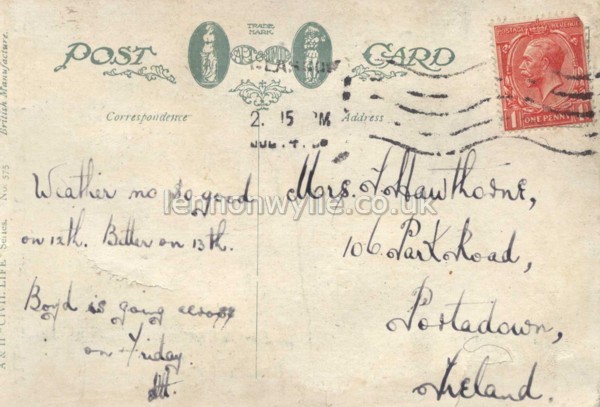 TRADE
MARK
POST CARD
Correspondence
Address
2. 15 PM
ONE PENNY
Weather no so good
on 12th. Better on 13th.
Boyd is going across
on Friday.
Mrs. Hawthorne,
106. Park Road,
Portadown,
Ireland.
lennonwylie.co.uk
British Manufacture.
"CIVIL LIFE" Series. No. 375